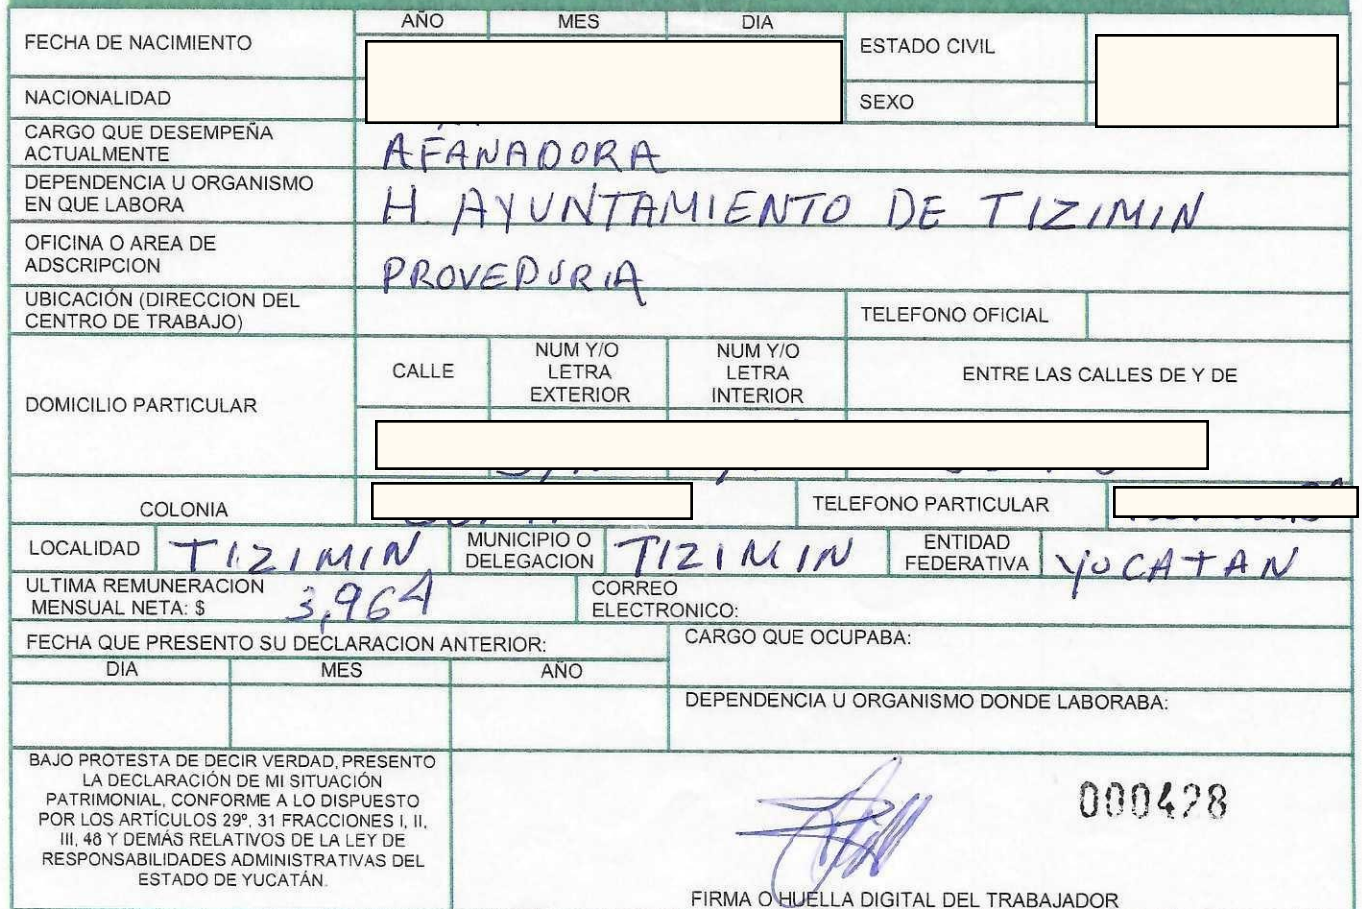 AÑO MES DIA
FECHA DE NACIMIENTO
ESTADO CIVIL
NACIONALIDAD
SEXO
CARGO QUE DESEMPEÑA
ACTUALMENTE
AFANADORA
DEPENDENCIA U ORGANISMO
EN QUE LABORA
H. AYUNTAMIENTO DE TIZIMIN
OFICINA O AREA DE
ADSCRIPCION
PROVEDURIA
UBICACIÓN (DIRECCION DEL
CENTRO DE TRABAJO)
TELEFONO OFICIAL
DOMICILIO PARTICULAR
CALLE
NUM Y/O
LETRA
EXTERIOR
NUM Y/O
LETRA
INTERIOR
ENTRE LAS CALLES DE Y DE
COLONIA
TELEFONO PARTICULAR
LOCALIDAD TIZIMIN
MUNICIPIO O
DELEGACION
TIZIMIN
ENTIDAD
FEDERATIVA
YUCATAN
ULTIMA REMUNERACION
MENSUAL NETA: $ 3,964
CORREO
ELECTRONICO:
FECHA QUE PRESENTO SU DECLARACION ANTERIOR:
DIA MES AÑO
CARGO QUE OCUPABA:
DEPENDENCIA U ORGANISMO DONDE LABORABA:
BAJO PROTESTA DE DECIR VERDAD, PRESENTO
LA DECLARACIÓN DE MI SITUACIÓN
PATRIMONIAL, CONFORME A LO DISPUESTO
POR LOS ARTÍCULOS 29º, 31 FRACCIONES I, II,
III, 48 Y DEMÁS RELATIVOS DE LA LEY DE
RESPONSABILIDADES ADMINISTRATIVAS DEL
ESTADO DE YUCATÁN.
000428
FIRMA O HUELLA DIGITAL DEL TRABAJADOR